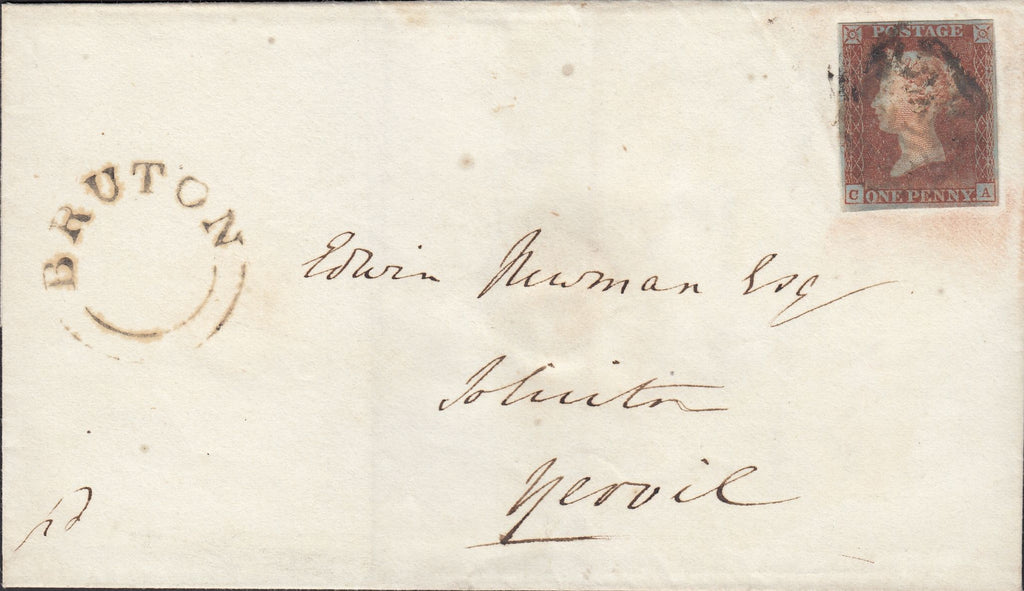 POSTAGE
C ONE PENNY. A
BRUTON
Edwin Newman Esq
Solicitor
Yeovil
pd